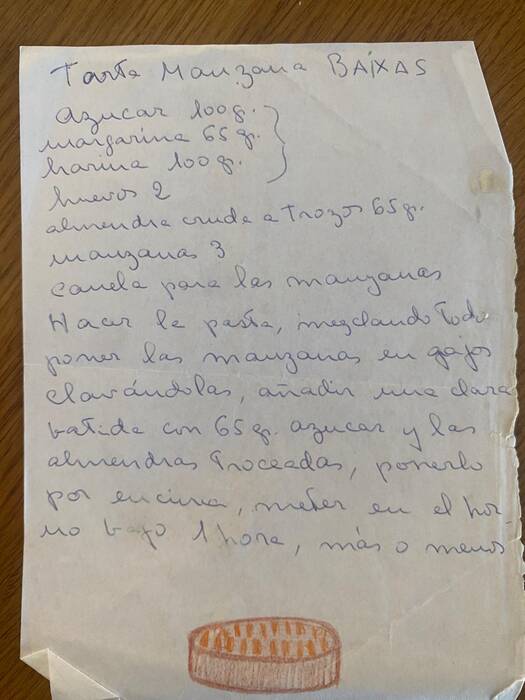 Tarta Manzana BAIXAS
Azucar 100 g.
margarina 65 gr.
harina 100 gr.
huevos 2
almendra cruda a Trozos 65 gr.
manzanas 3
canela para las manzanas
Hacer la pasta, mezclando Todo
poner las manzanas en gajos
clavándolas, añadir una clara
batida con 65 gr. azucar y las
almendras Troceadas, ponerlo
por encima, meter en el hor-
no bajo 1 hora, más o menos